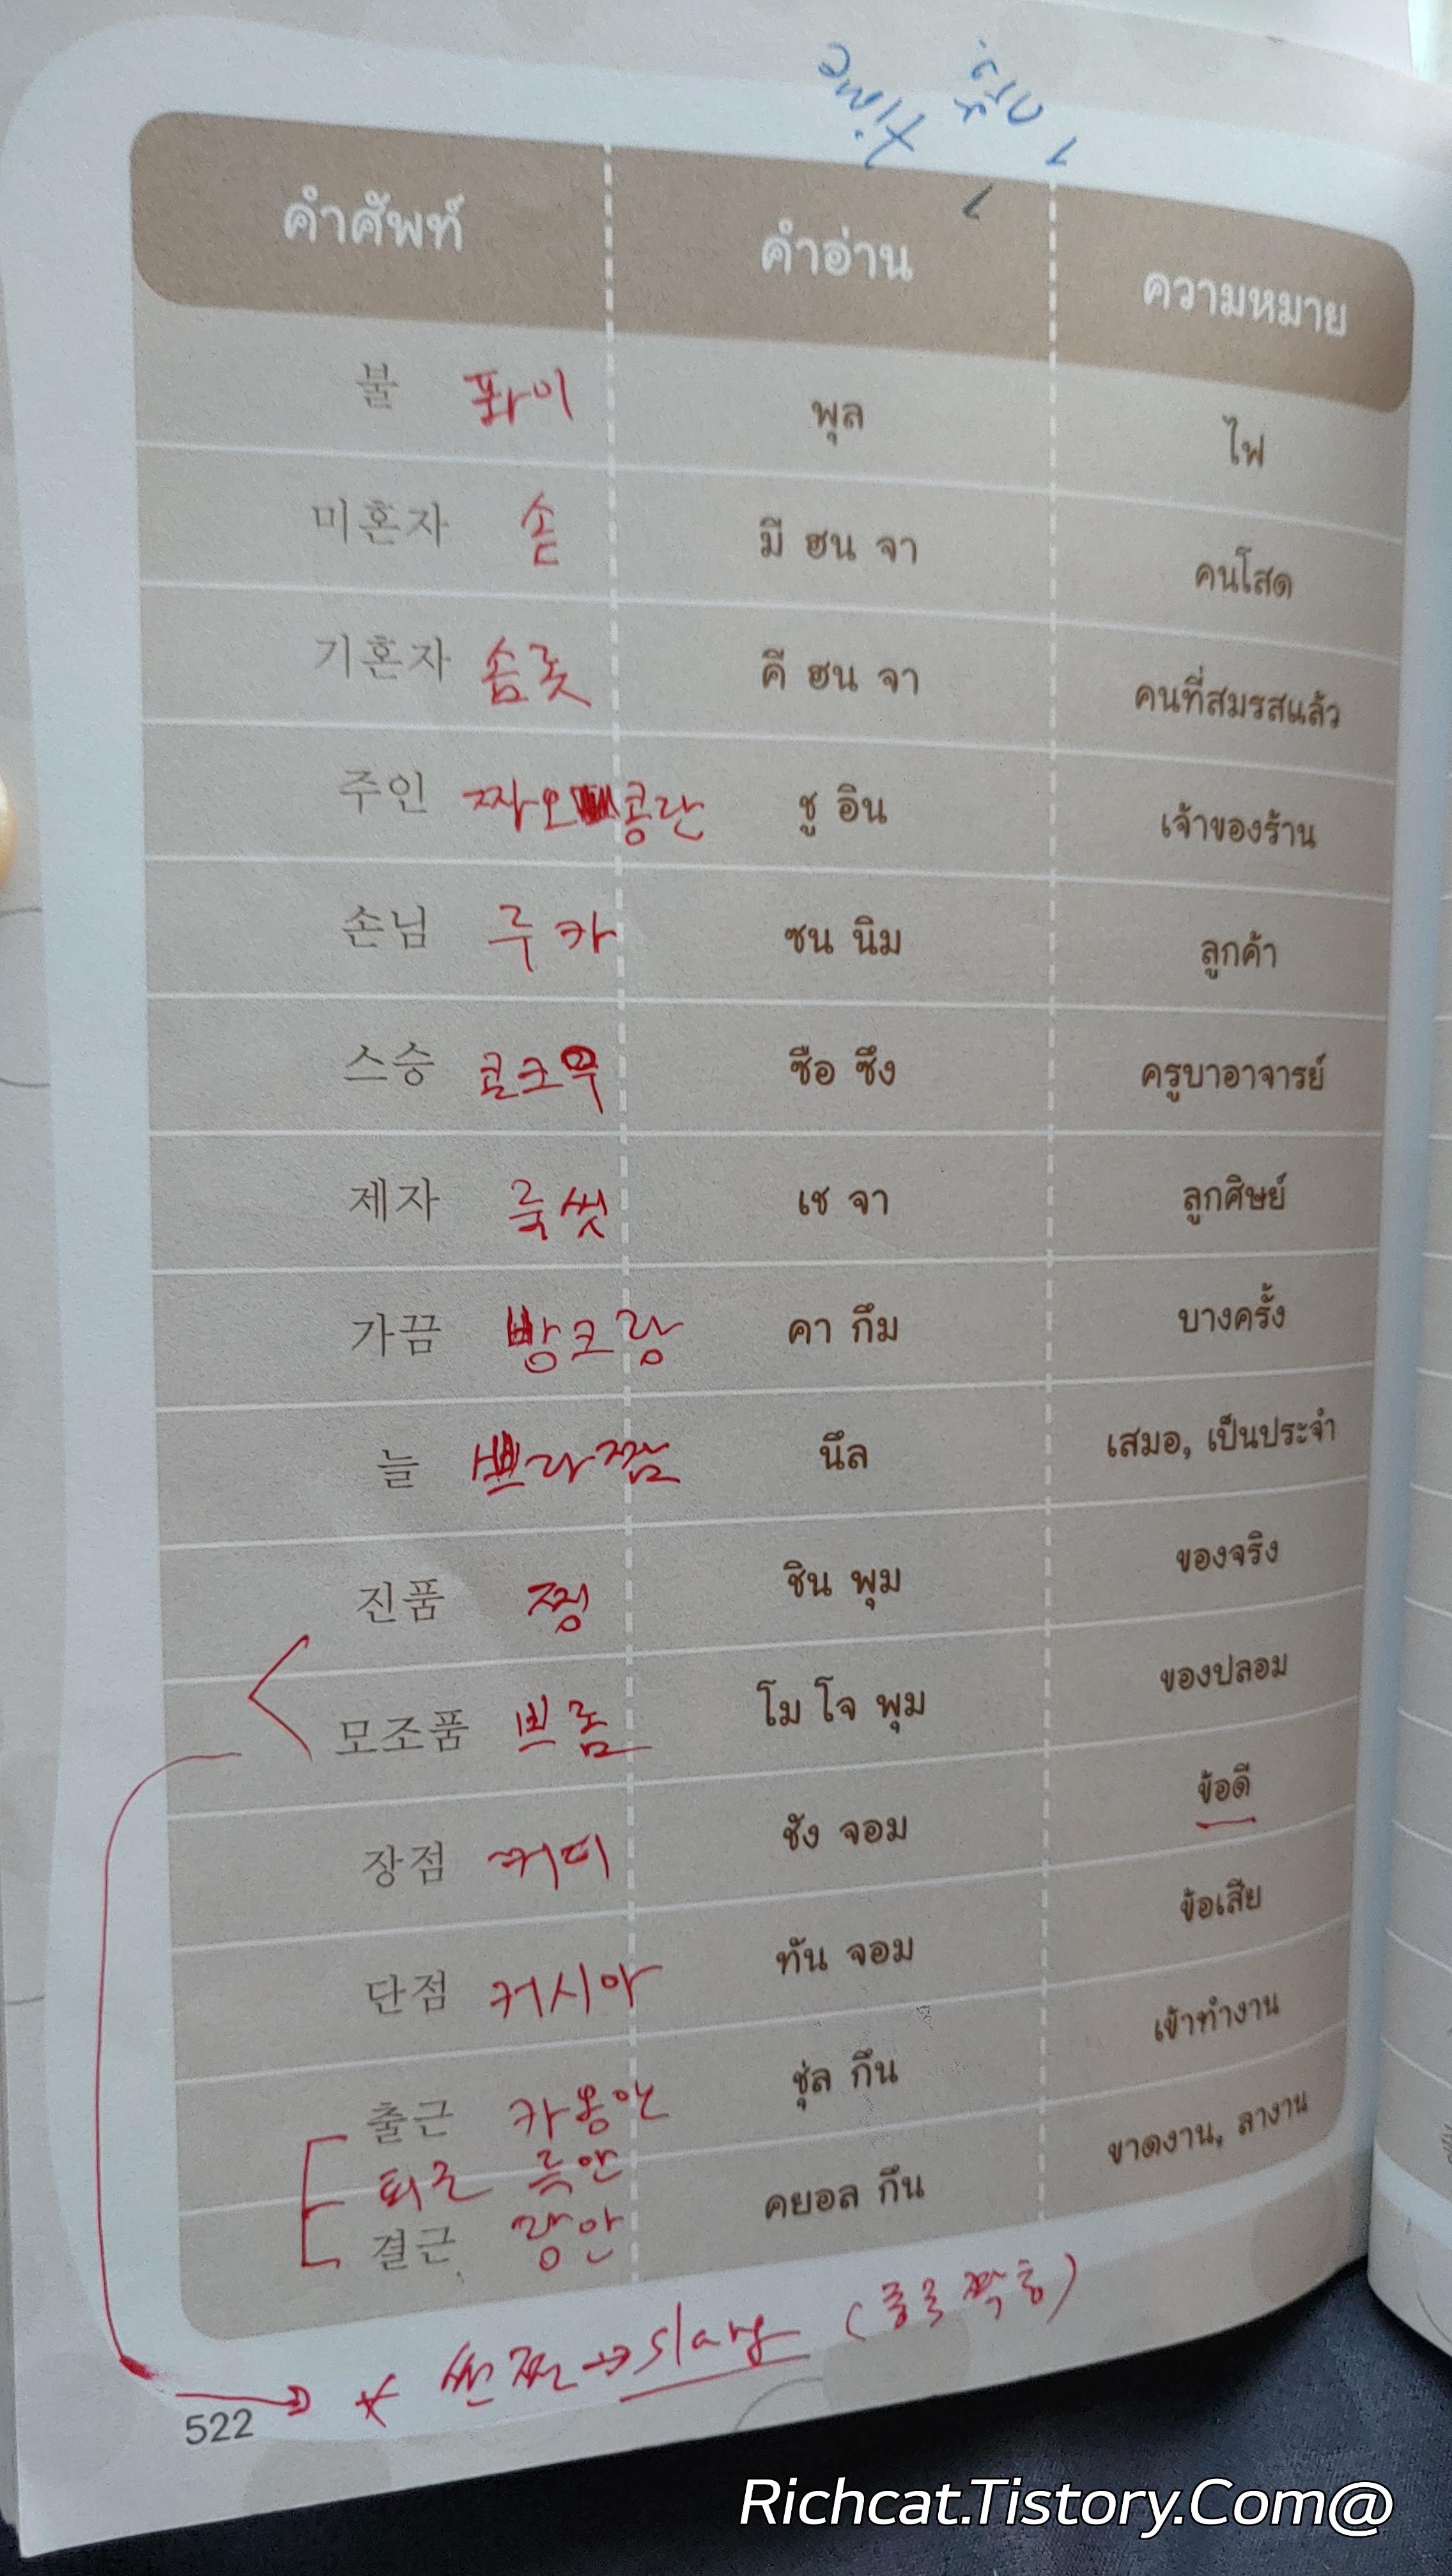 time ครั้ง
คำศัพท์ คำอ่าน ความหมาย
불 퐈이 พุล ไฟ
미혼자 솓 มี ฮน จา คนโสด
기혼자 솜롯 คี ฮน จา คนที่สมรสแล้ว
주인 짜오 콩란 ชู อิน เจ้าของร้าน
손님 루카 ซน นิม ลูกค้า
스승 ซือ ซึง ครูบาอาจารย์
제자 룩씻 เช จา ลูกศิษย์
가끔 빵크랑 คา กึม บางครั้ง
늘 쁘라짬 นึล เสมอ, เป็นประจำ
진품 찡 ชิน พุม ของจริง
모조품 쁘롬 โม โจ พุม ของปลอม
장점 커디 ชัง จอม ข้อดี
단점 커시아 ทัน จอม ข้อเสีย
출근 ชุล กึน เข้าทำงาน
퇴근
결근 คยอล กึน ขาดงาน, ลางาน
* 쎈찐 → slang
522
Richcat.Tistory.Com@